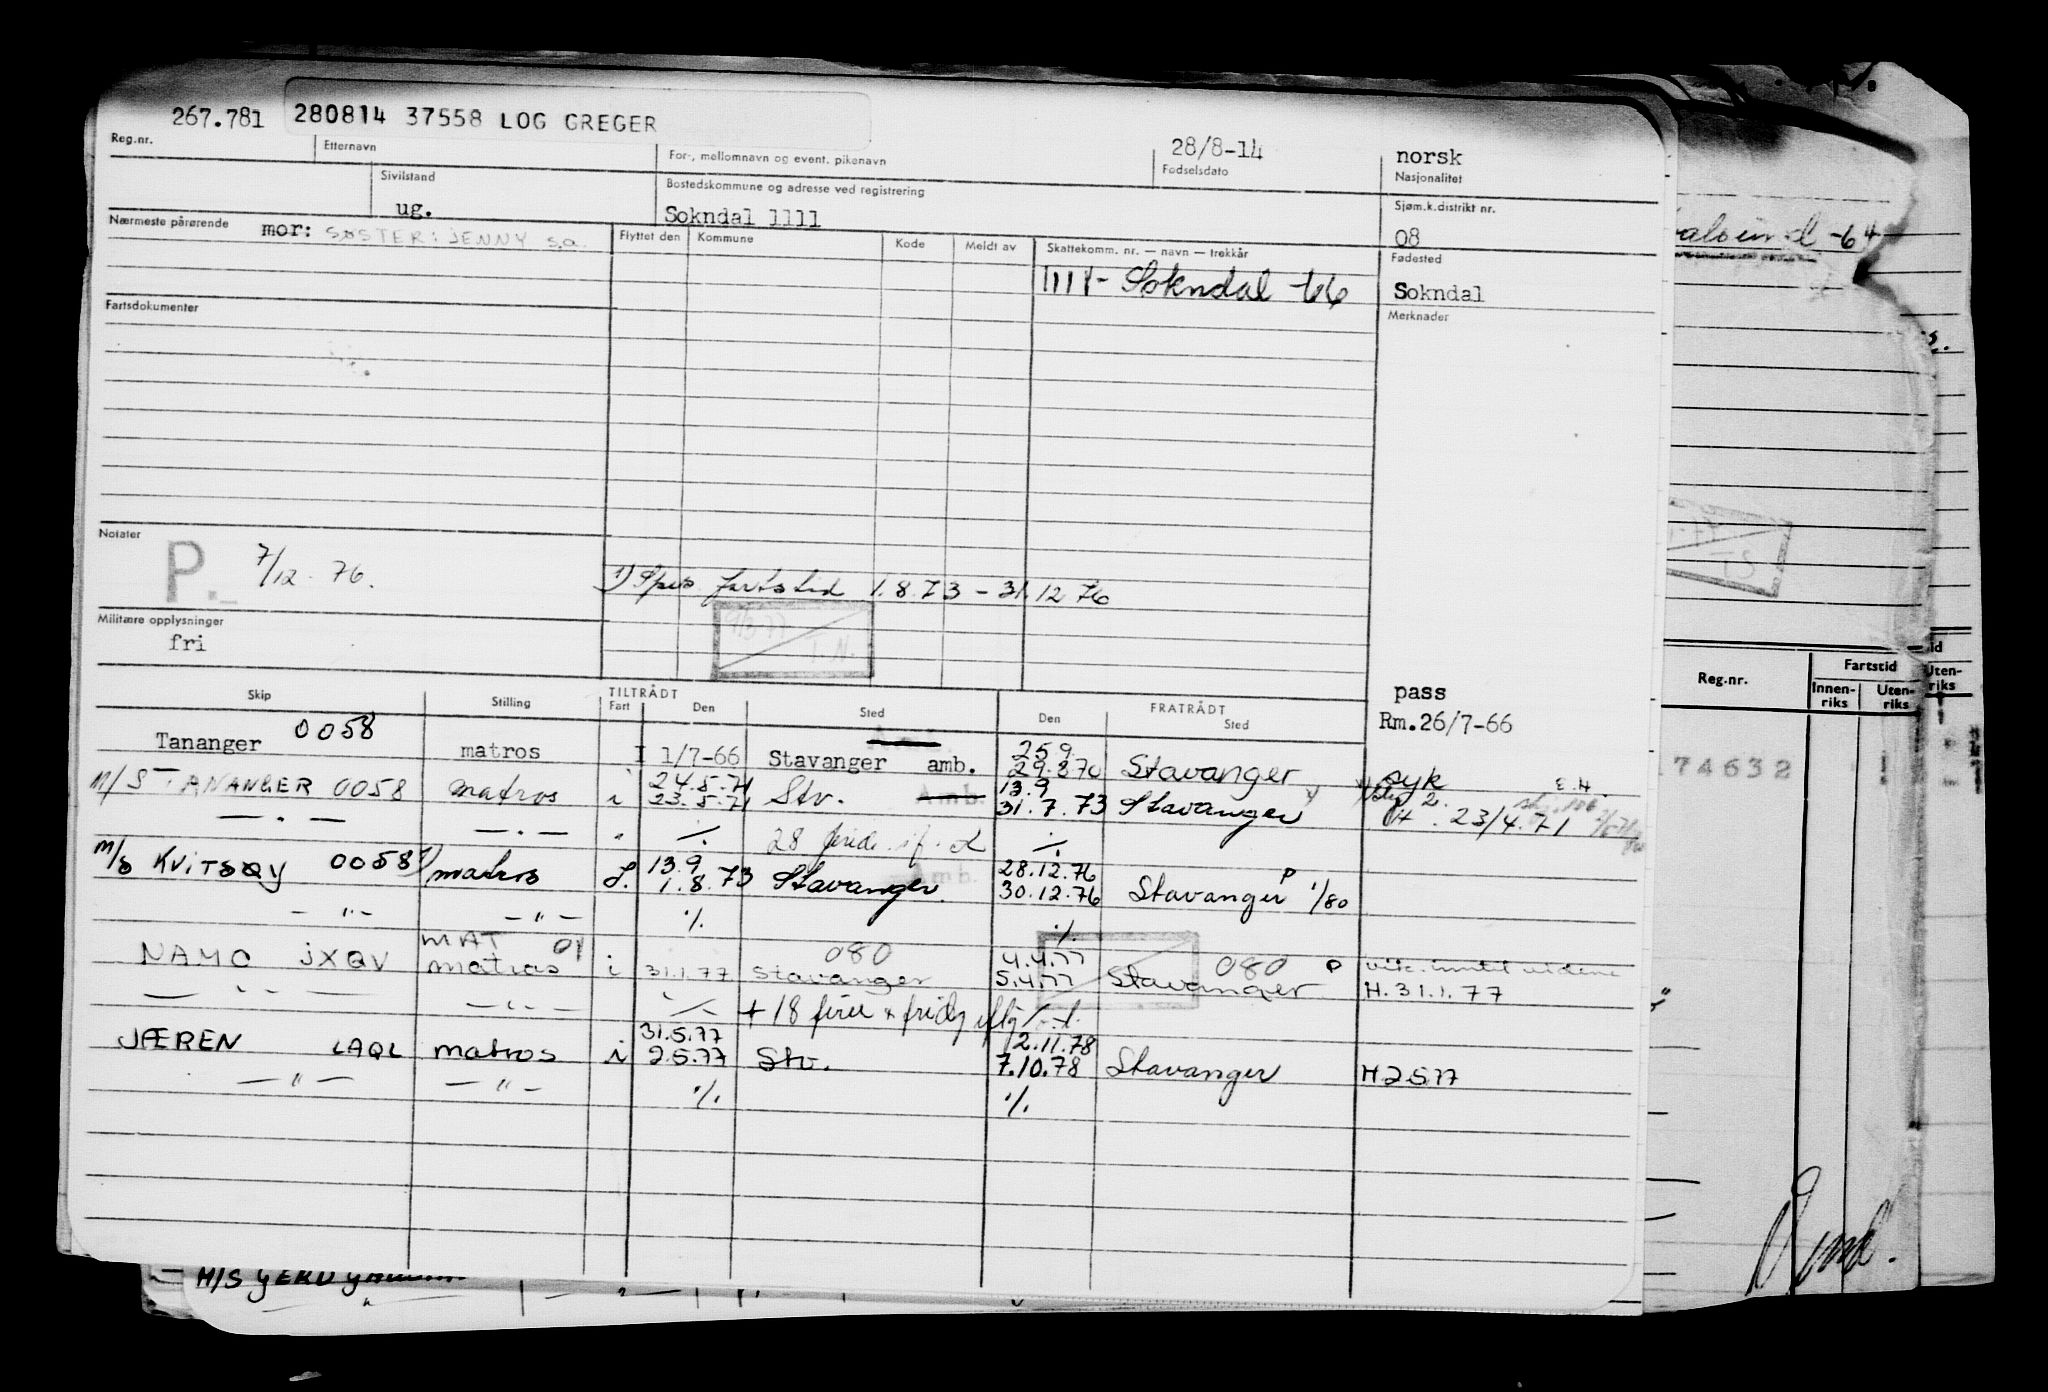 267.781 280814 37558 LOG GREGER 28/8-14 norsk
Reg.nr. Etternavn For-, mellomnavn og event. pikenavn Fødselsdato Nasjonalitet
Sivilstand Bostedskommune og adresse ved registrering Sjøm.k.distrikt nr.
ug. Sokndal 1111 08
Nærmeste pårørende mor: SØSTER: JENNY s.a. Flyttet den Kommune Kode Meldt av Skattekomm. nr. — navn — trekkår Fødested
1111- Sokndal -66 Sokndal
Fartsdokumenter Merknader
Notater
P. 7/12. 76.
1) Spes. fartstid 1.8.73 - 31.12 76
Militære opplysninger
fri
9/3 77
T.N.
pass
Rm.26/7-66
Skip Stilling TILTRÅDT Fart Den Sted FRATRÅDT Den Sted
Tananger 0058 matros I 1/7-66 Stavanger amb. 25.9. 29.8 70 Stavanger syk E.H.
M/S TANANGER 0058 matros i 24.5.71 23.5.71 Stv. Amb. 13.9 31.7.73 Stavanger H. 23/4.71
— " — — " — " ./. 28 ./.
M/S KVITSØY 0058 1) matros 13.9 1.8.73 Stavanger Amb. 28.12.76 30.12.76 Stavanger P 1/80
— " — — " — ./. ./.
NAMO JXQV MAT 01 matros i 31.1.77 080 Stavanger 4.4.77 5.4.77 080 Stavanger P H.31.1.77
— " — — " — ./. + 18 ferie + fridg ./.
JÆREN LAQL matros i 31.5.77 2.5.77 Stv. 2.11.78 7.10.78 Stavanger H.2.5.77
— " — — " — ./. ./.
-64
Reg.nr. Fartstid
Innen-riks Uten-riks
Uten-riks
74632
M/S